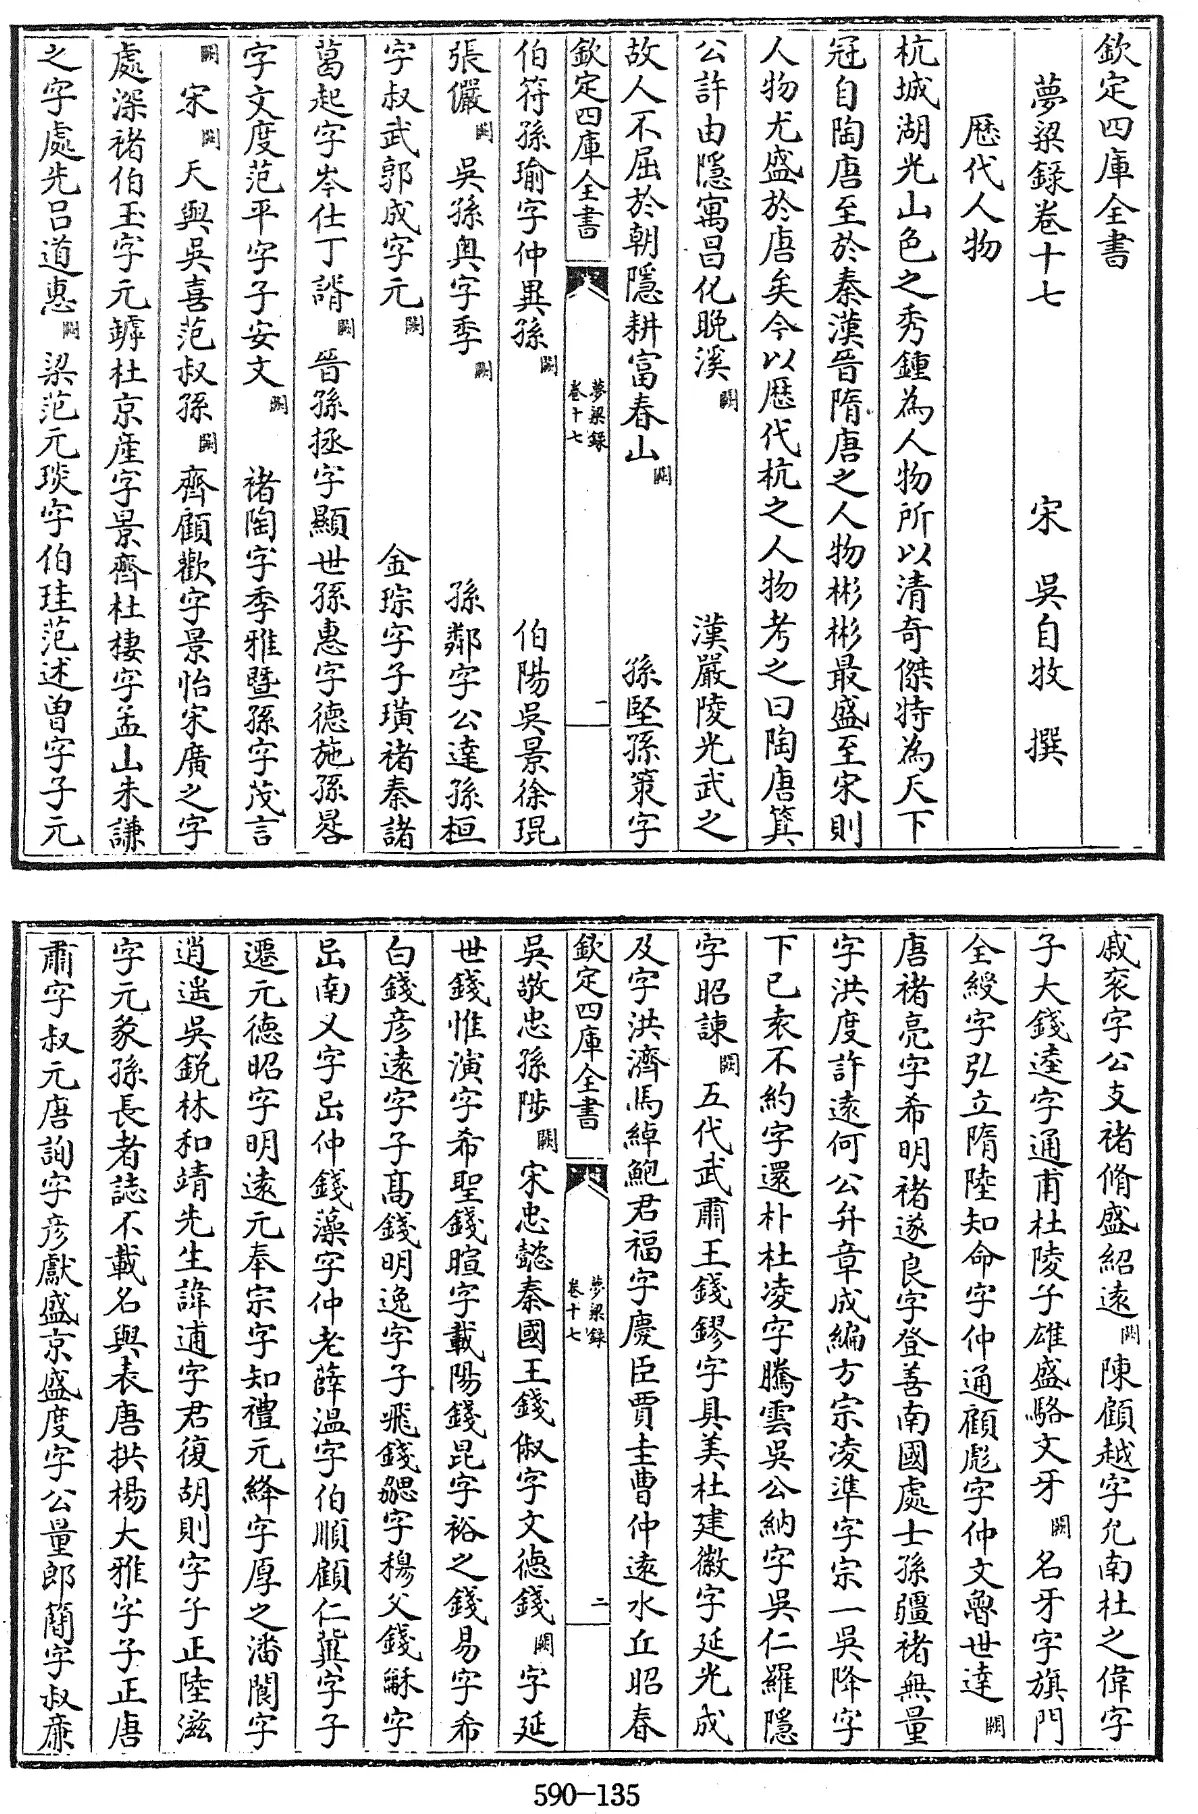 欽定四庫全書
夢粱錄卷十七 宋 吳自牧 撰
歷代人物
杭城湖光山色之秀鍾為人物所以清奇傑特為天下
冠自陶唐至於秦漢晉隋唐之人物彬彬最盛至宋則
人物尤盛於唐矣今以歷代杭之人物考之曰陶唐箕
公許由隱寓昌化晚溪闕 漢嚴陵光武之
故人不屈於朝隱耕富春山闕 孫堅孫策字
欽定四庫全書 夢粱錄 卷十七 一
伯符孫瑜字仲異孫闕 伯陽吳景徐琨
張儼闕 吳孫奧字季闕 孫鄰字公達孫桓
字叔武郭成字元闕 金琮字子璜褚秦諸
葛起字岑仕丁諝闕 晉孫拯字顯世孫惠字德施孫晷
字文度范平字子安文闕 褚陶字季雅暨孫字茂言
闕 宋闕 天與吳喜范叔孫闕 齊顧歡字景怡宋廣之字
處深褚伯玉字元璩杜京産字景齊杜棲字孟山朱謙
之字處先吕道惠闕 梁范元琰字伯珪范述曾字子元
戚衮字公支褚脩盛紹遠闕 陳顧越字允南杜之偉字
子大錢逵字通甫杜陵子雄盛駱文牙闕 名牙字旗門
全緩字弘立隋陸知命字仲通顧彪字仲文魯世達闕
唐褚亮字希明褚遂良字登善南國處士孫疆褚無量
字洪度許遠何公弁章成緬方宗凌準字宗一吳降字
下已袁不約字還朴杜凌字騰雲吳公納字吳仁羅隱
字昭諫闕 五代武肅王錢鏐字具美杜建徽字延光成
及字洪濟馬綽鮑君福字慶臣賈圭曹仲逺水丘昭春
欽定四庫全書 夢粱錄 卷十七 二
吳敬忠孫陟闕 宋忠懿秦國王錢俶字文德錢闕 字延
世錢惟演字希聖錢暄字載陽錢昆字裕之錢易字希
白錢彥遠字子高錢明逸字子飛錢勰字穆父錢龢字
岊南乂字岊仲錢藻字仲老薛温字伯順顧仁冀字子
遷元德昭字明遠元奉宗字知禮元絳字厚之潘閬字
逍遙吳鋭林和靖先生諱逋字君復胡則字子正陸滋
字元象孫長者誌不載名與表唐拱楊大雅字子正唐
肅字叔元唐詢字彥猷盛京盛度字公量郎簡字叔亷
590-135